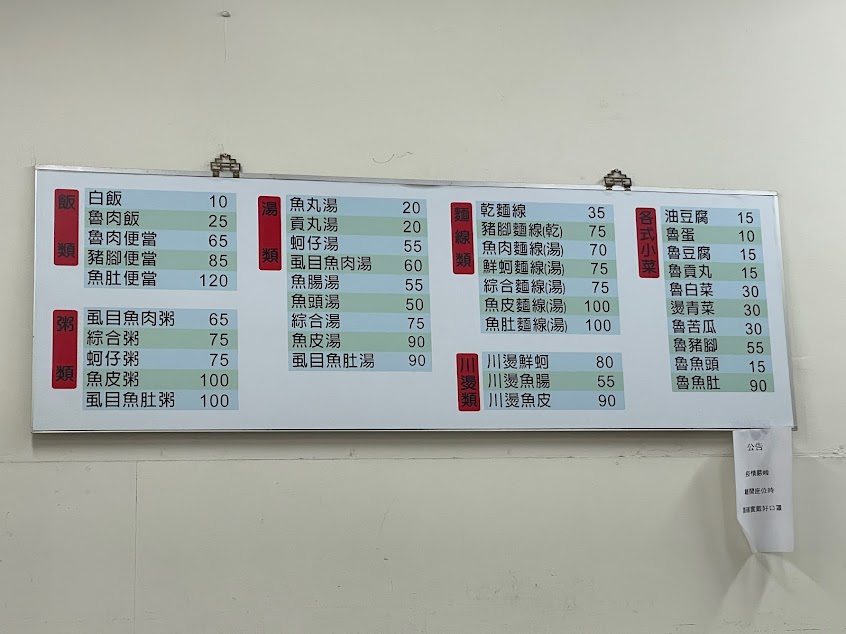 飯類
白飯 10
魯肉飯 25
魯肉便當 65
豬腳便當 85
魚肚便當 120
粥類
虱目魚肉粥 65
綜合粥 75
蚵仔粥 75
魚皮粥 100
虱目魚肚粥 100
湯類
魚丸湯 20
貢丸湯 20
蚵仔湯 55
虱目魚肉湯 60
魚腸湯 55
魚頭湯 50
綜合湯 75
魚皮湯 90
虱目魚肚湯 90
麵線類
乾麵線 35
豬腳麵線(乾) 75
魚肉麵線(湯) 70
鮮蚵麵線(湯) 75
綜合麵線(湯) 75
魚皮麵線(湯) 100
魚肚麵線(湯) 100
川燙類
川燙鮮蚵 80
川燙魚腸 55
川燙魚皮 90
各式小菜
油豆腐 15
魯蛋 10
魯豆腐 15
魯貢丸 15
魯白菜 30
燙青菜 30
魯苦瓜 30
魯豬腳 55
魯魚頭 15
魯魚肚 90
公告
離開座位時
戴好口罩